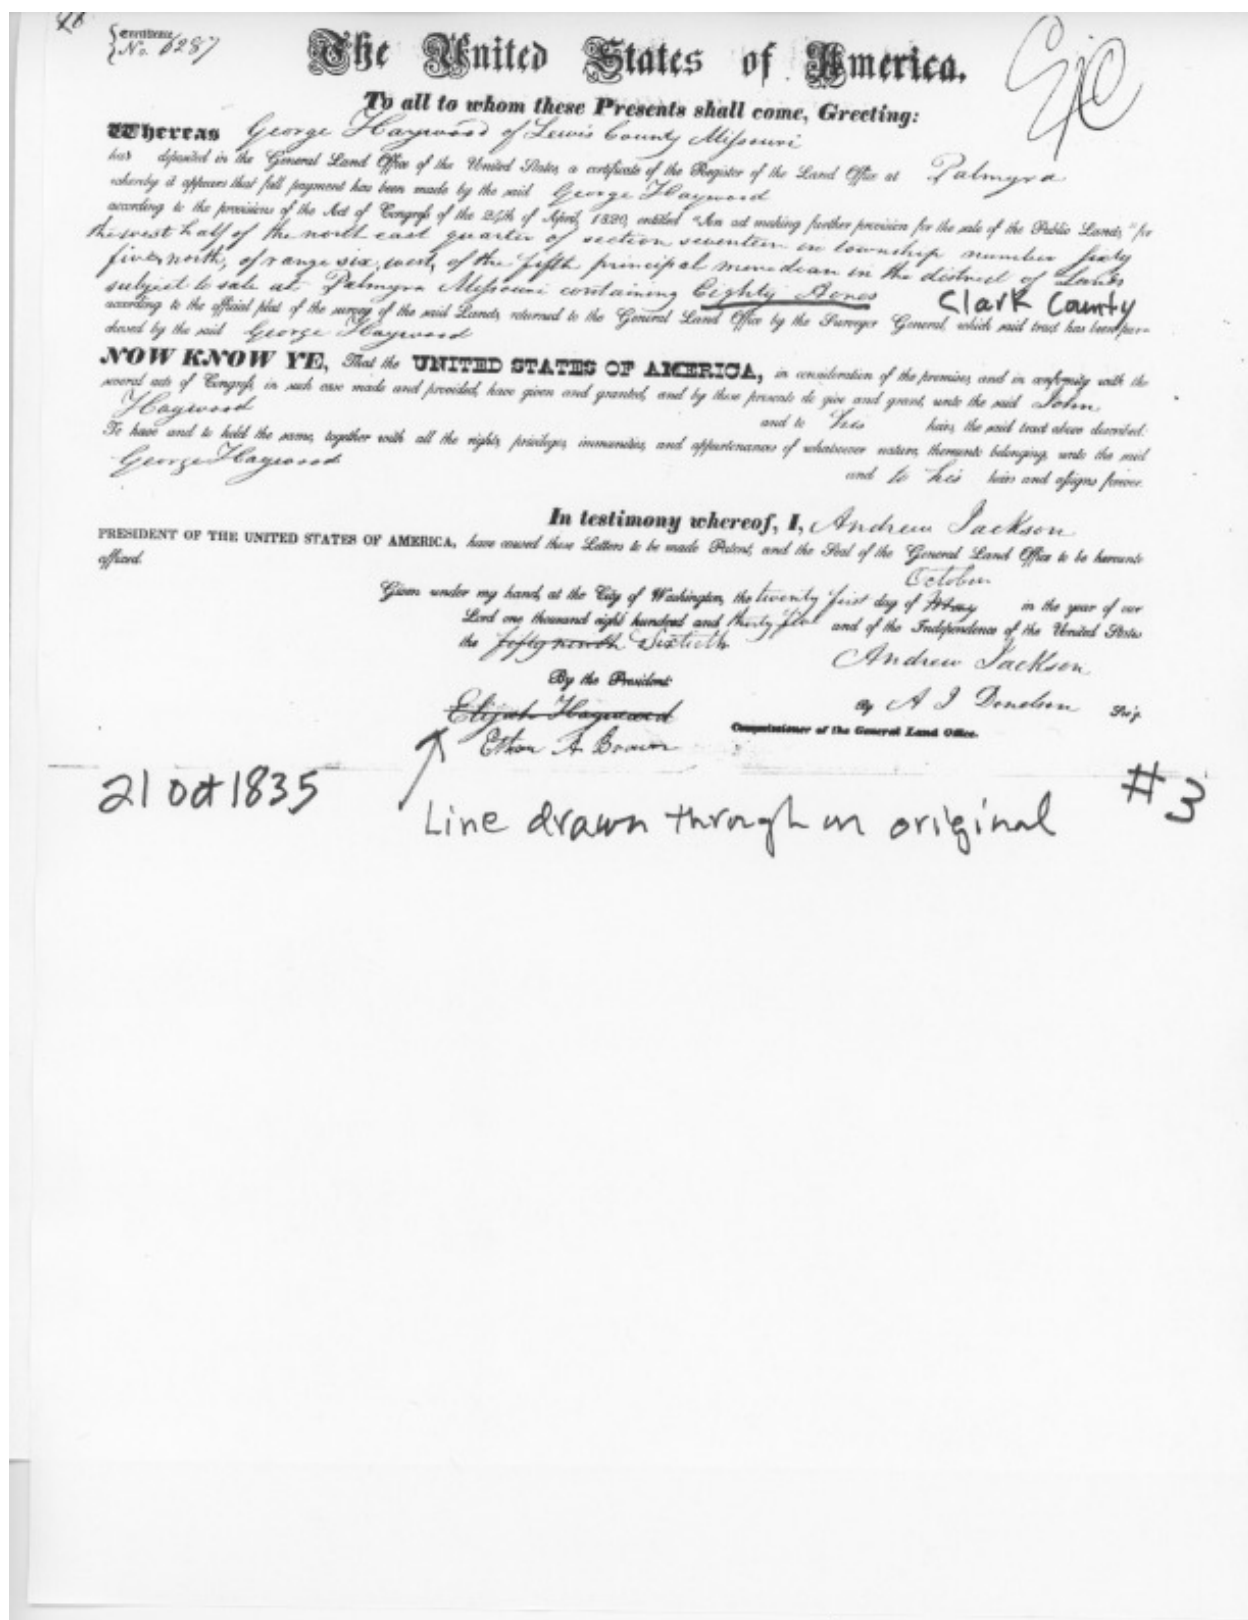 Certificate
No. 6287
The United States of America,
To all to whom these Presents shall come, Greeting:
Whereas George Haywood of Lewis County Missouri
has deposited in the General Land Office of the United States, a certificate of the Register of the Land Office at Palmyra
whereby it appears that full payment has been made by the said George Haywood
according to the provisions of the Act of Congress of the 24th of April, 1820, entitled "An act making further provision for the sale of the Public Lands," for
the west half of the north east quarter of section seventeen in township number sixty
five, north, of range six, west, of the fifth principal meredean in the district of Lands
subject to sale at Palmyra Missouri containing Eighty Acres
Clark County
according to the official plat of the survey of the said Lands, returned to the General Land Office by the Surveyor General, which said tract has been pur-
chased by the said George Haywood
NOW KNOW YE, That the UNITED STATES OF AMERICA, in consideration of the premises, and in conformity with the
several acts of Congress, in such case made and provided, have given and granted, and by these presents do give and grant, unto the said John
Haywood and to his heirs, the said tract above described:
To have and to hold the same, together with all the rights, privileges, immunities, and appurtenances of whatsoever nature, thereunto belonging, unto the said
George Haywood and to his heirs and assigns forever.
In testimony whereof, I, Andrew Jackson
PRESIDENT OF THE UNITED STATES OF AMERICA, have caused these Letters to be made Patent, and the Seal of the General Land Office to be hereunto
affixed.
October
Given under my hand, at the City of Washington, the twenty first day of May in the year of our
Lord one thousand eight hundred and thirty five and of the Independence of the United States
the fifty ninth Sixtieth
Andrew Jackson
By the President:
By A J Donelson Sec'y.
Elijah Hayward
Commissioner of the General Land Office.
Ethan A Brown
21 Oct 1835
#3
Line drawn through on original